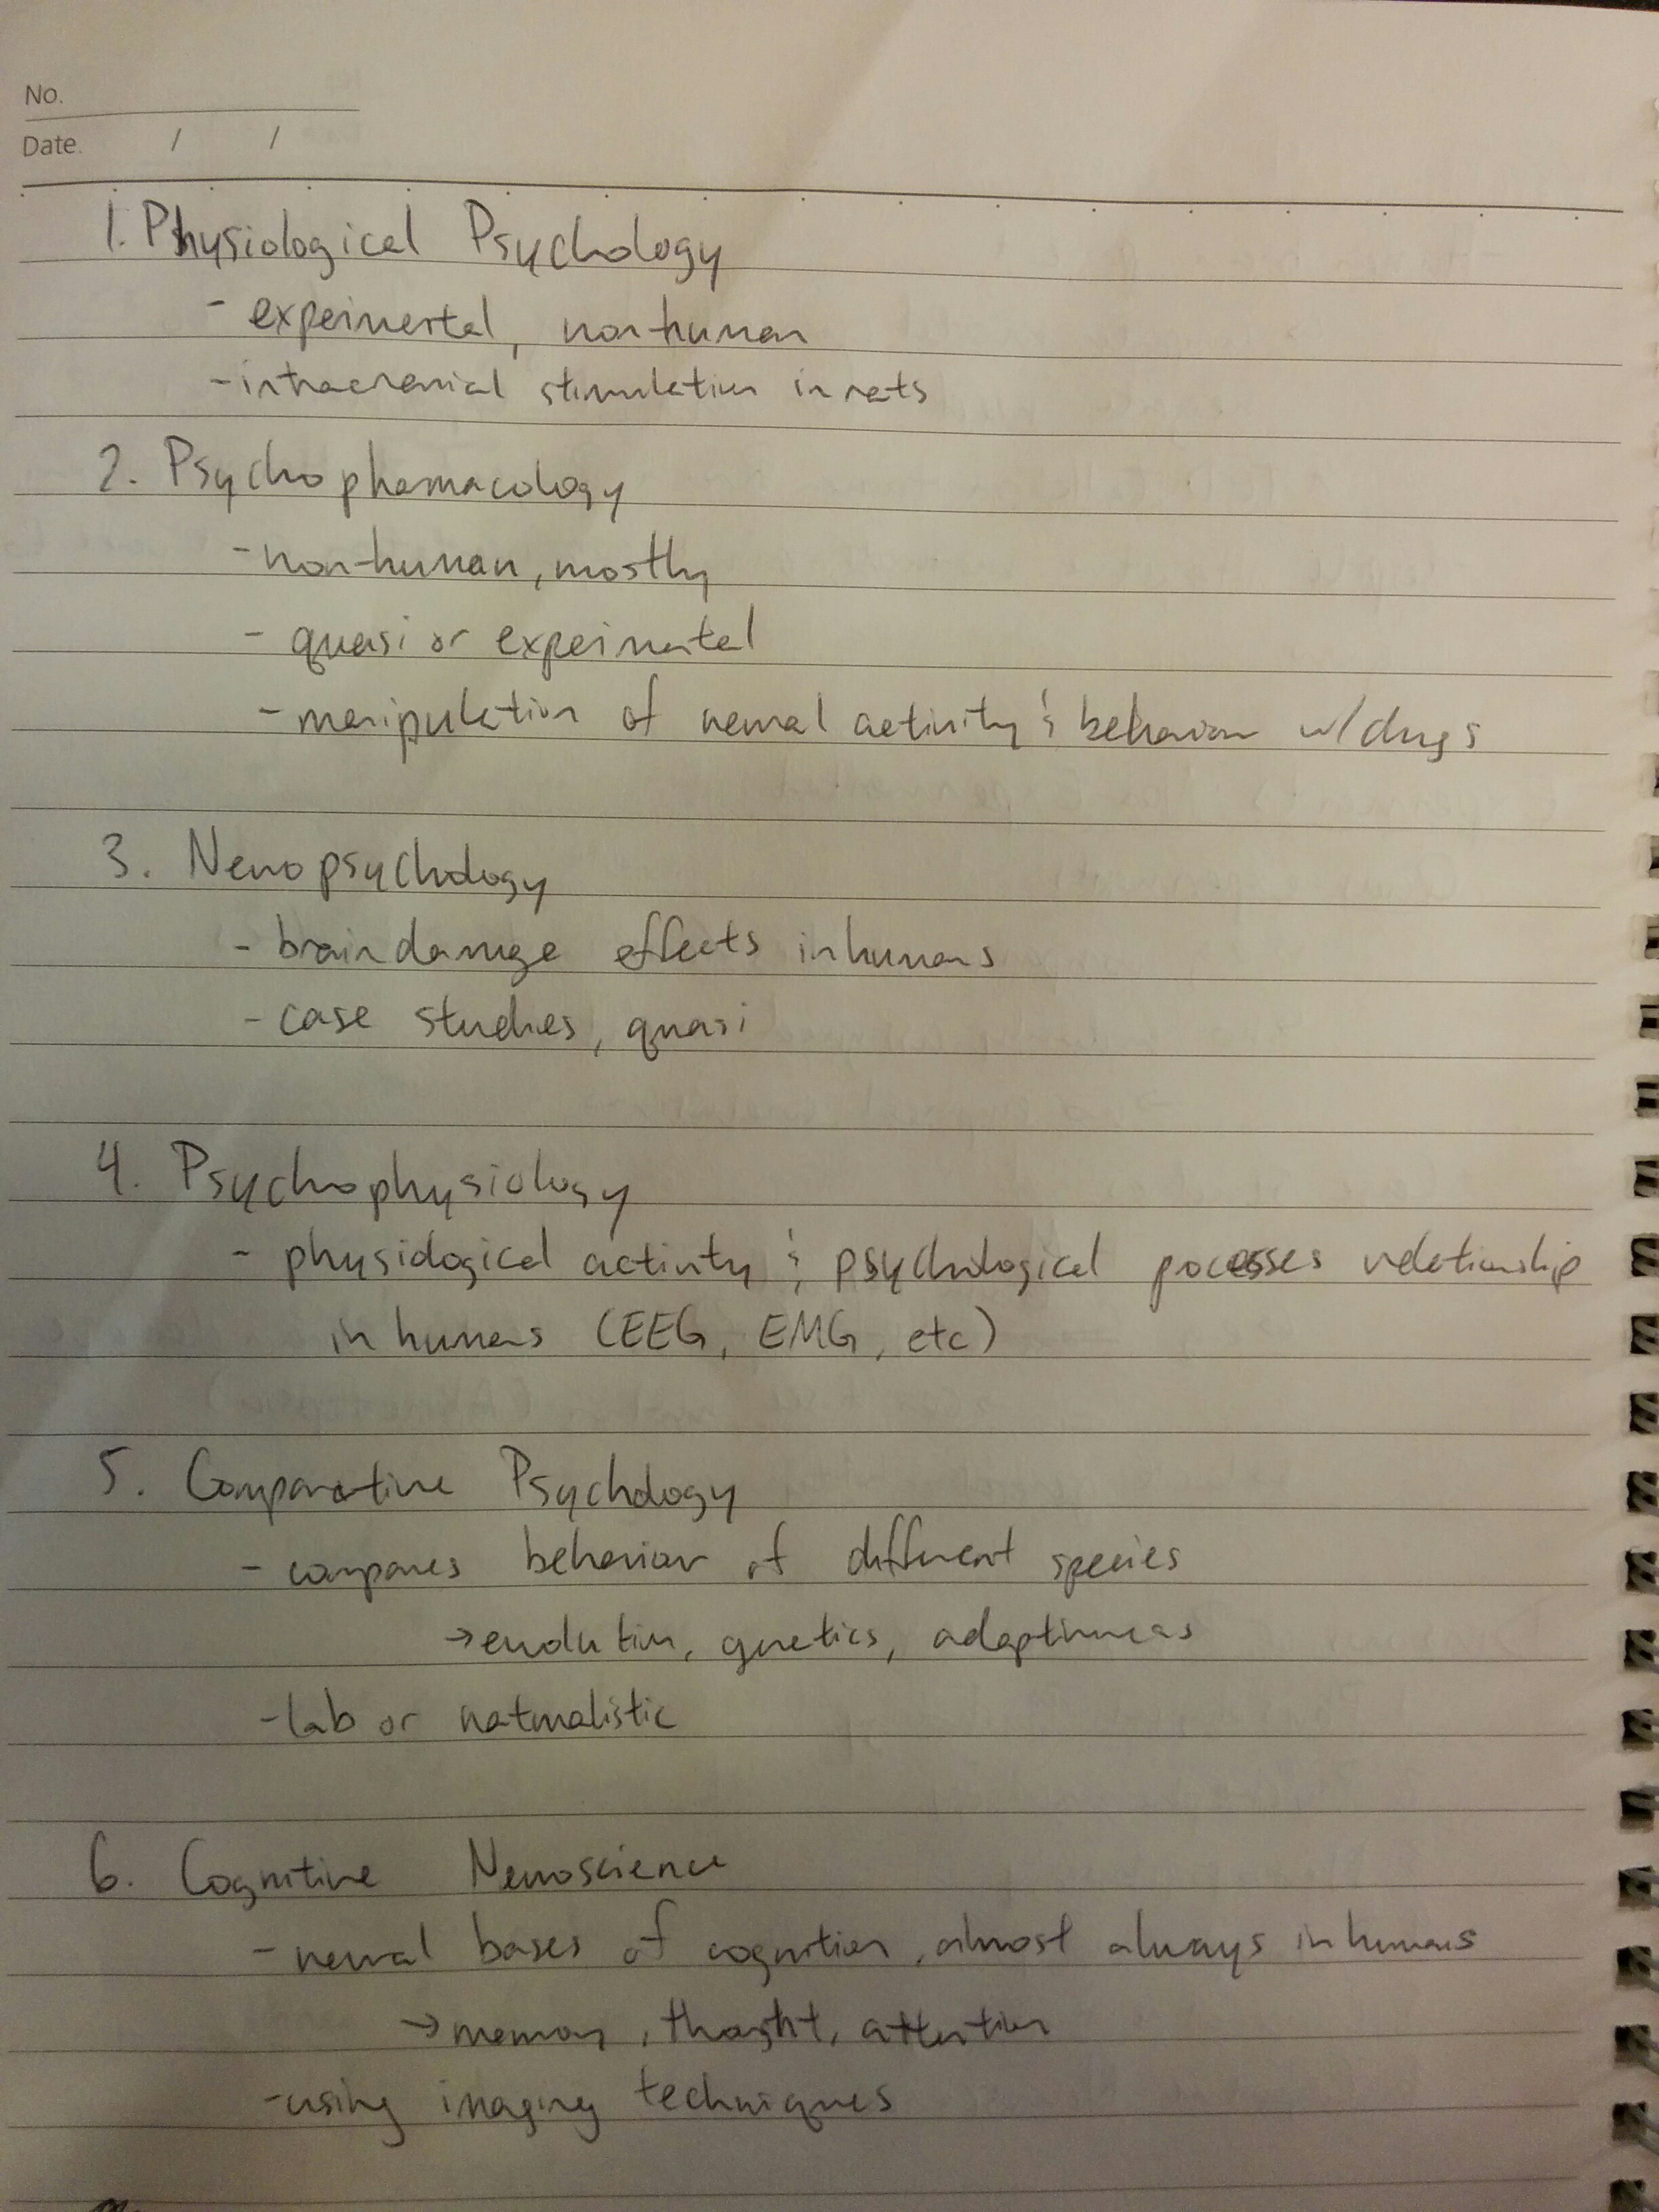 No.
Date. / /
1. Physiological Psychology
- experimental, non-human
- intracranial stimulation in rats
2. Psychopharmacology
- non-human, mostly
- quasi or experimental
- manipulation of neural activity & behavior w/ drugs
3. Neuropsychology
- brain damage effects in humans
- case studies, quasi
4. Psychophysiology
- physiological activity & psychological processes relationship
in humans (EEG, EMG, etc)
5. Comparative Psychology
- compares behavior of different species
→ evolution, genetics, adaptiveness
- lab or naturalistic
6. Cognitive Neuroscience
- neural bases of cognition, almost always in humans
→ memory, thought, attention
- using imaging techniques